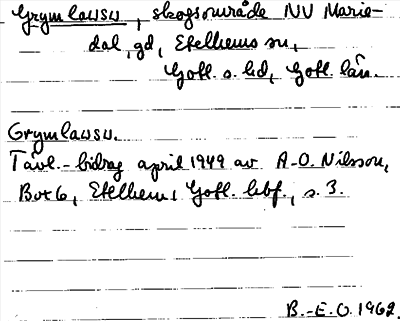 Grymlausu, skogsområde NV Marie-
dal, gd, Etelhems sn,
Gotl. s. hd, Gotl. län.
Grymlausu.
Tävl.-bidrag april 1949 av A-O. Nilsson,
Box 6, Etelhem, Gotl. lbf., s. 3.
B.-E.O. 1962.